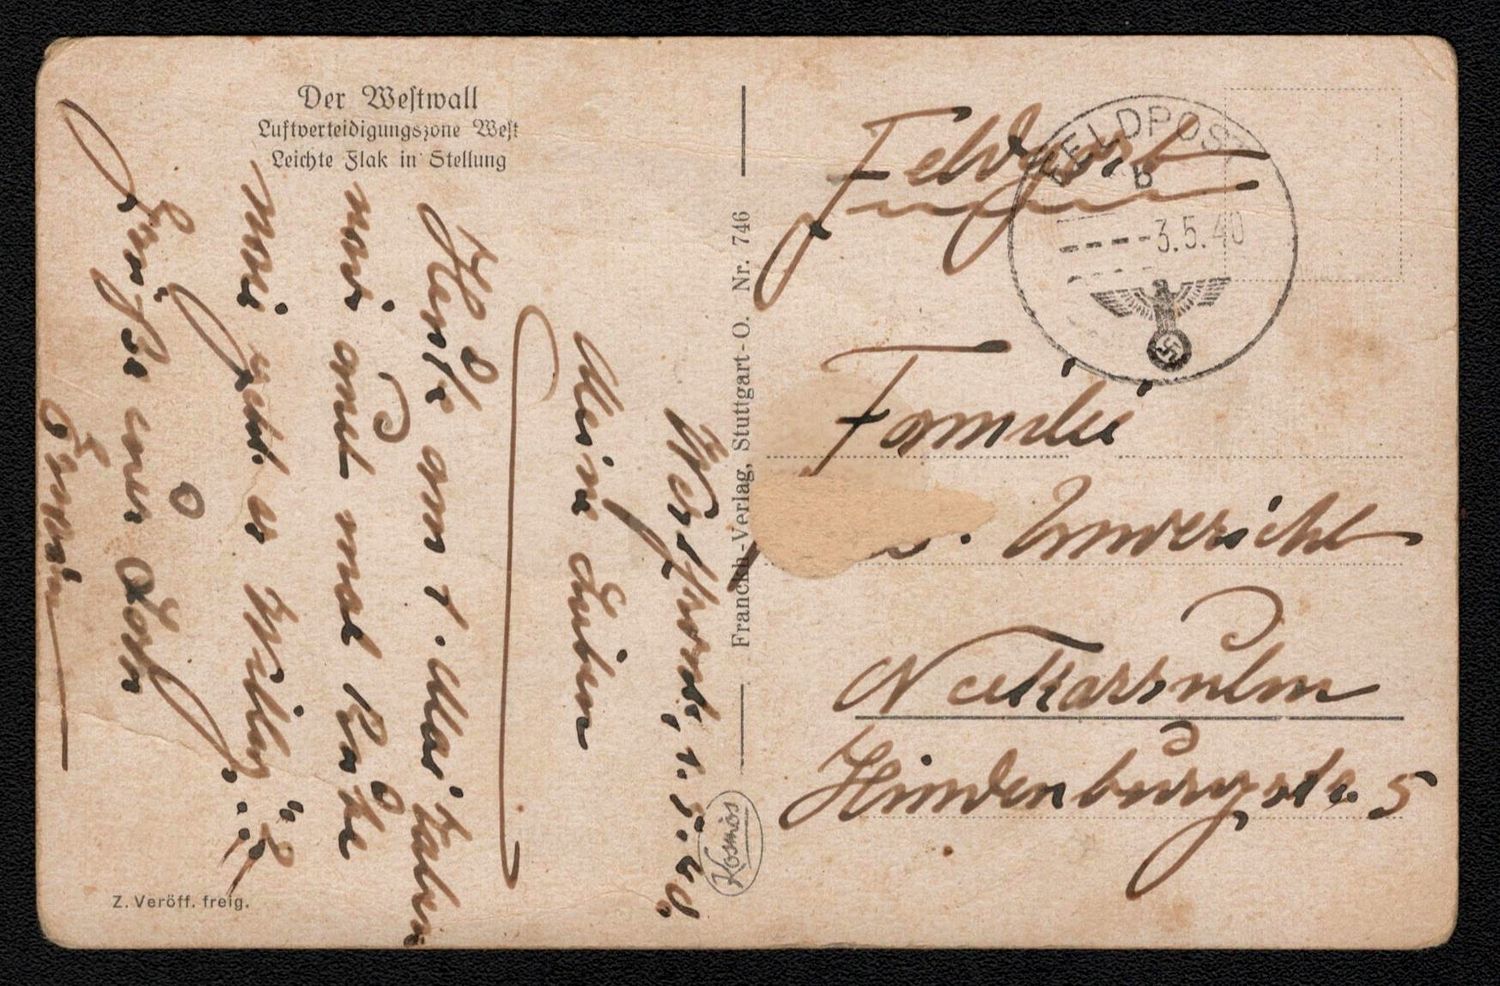 Der Westwall
Luftverteidigungszone West
Leichte Flak in Stellung
Westfront, 1.5.40.
Meine Lieben
Heute am 1. Mai haben
wir auch mal Ruhe
wie geht es
Grüße euer
Erwin
Z. Veröff. freig.
Franckh-Verlag, Stuttgart-O. Nr. 746
Kosmos
Feldpost
FELDPOST
b
3.5.40
Familie
Neckarsulm
Hindenburgstr. 5